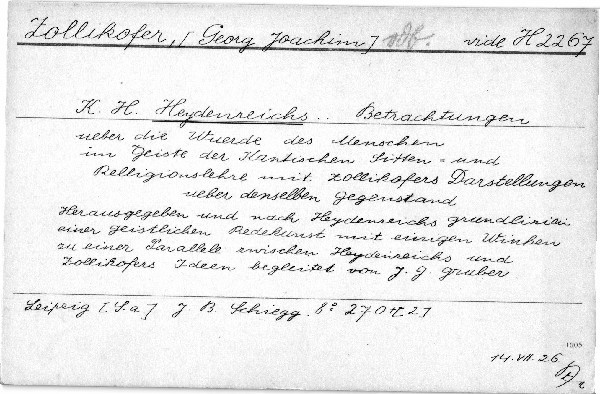 Zollikofer, [Georg Joachim] vide H 2267
K. H. Heydenreichs .. Betrachtungen
ueber die Wuerde des Menschen
im Geiste der Kantischen Sitten- und
Relligionslehre mit Zollikofers Darstellungen
ueber denselben Gegenstand
Herausgegeben und nach Heydenreichs grundlinien
einer geistlichen Redekunst mit einigen Winken
zu einer Parallele zwischen Heydenreichs und
Zollikofers Ideen begleitet von J. G. Gruber
Leipzig [S. a.] J. B. Schiegg 8°
14. VII. 26